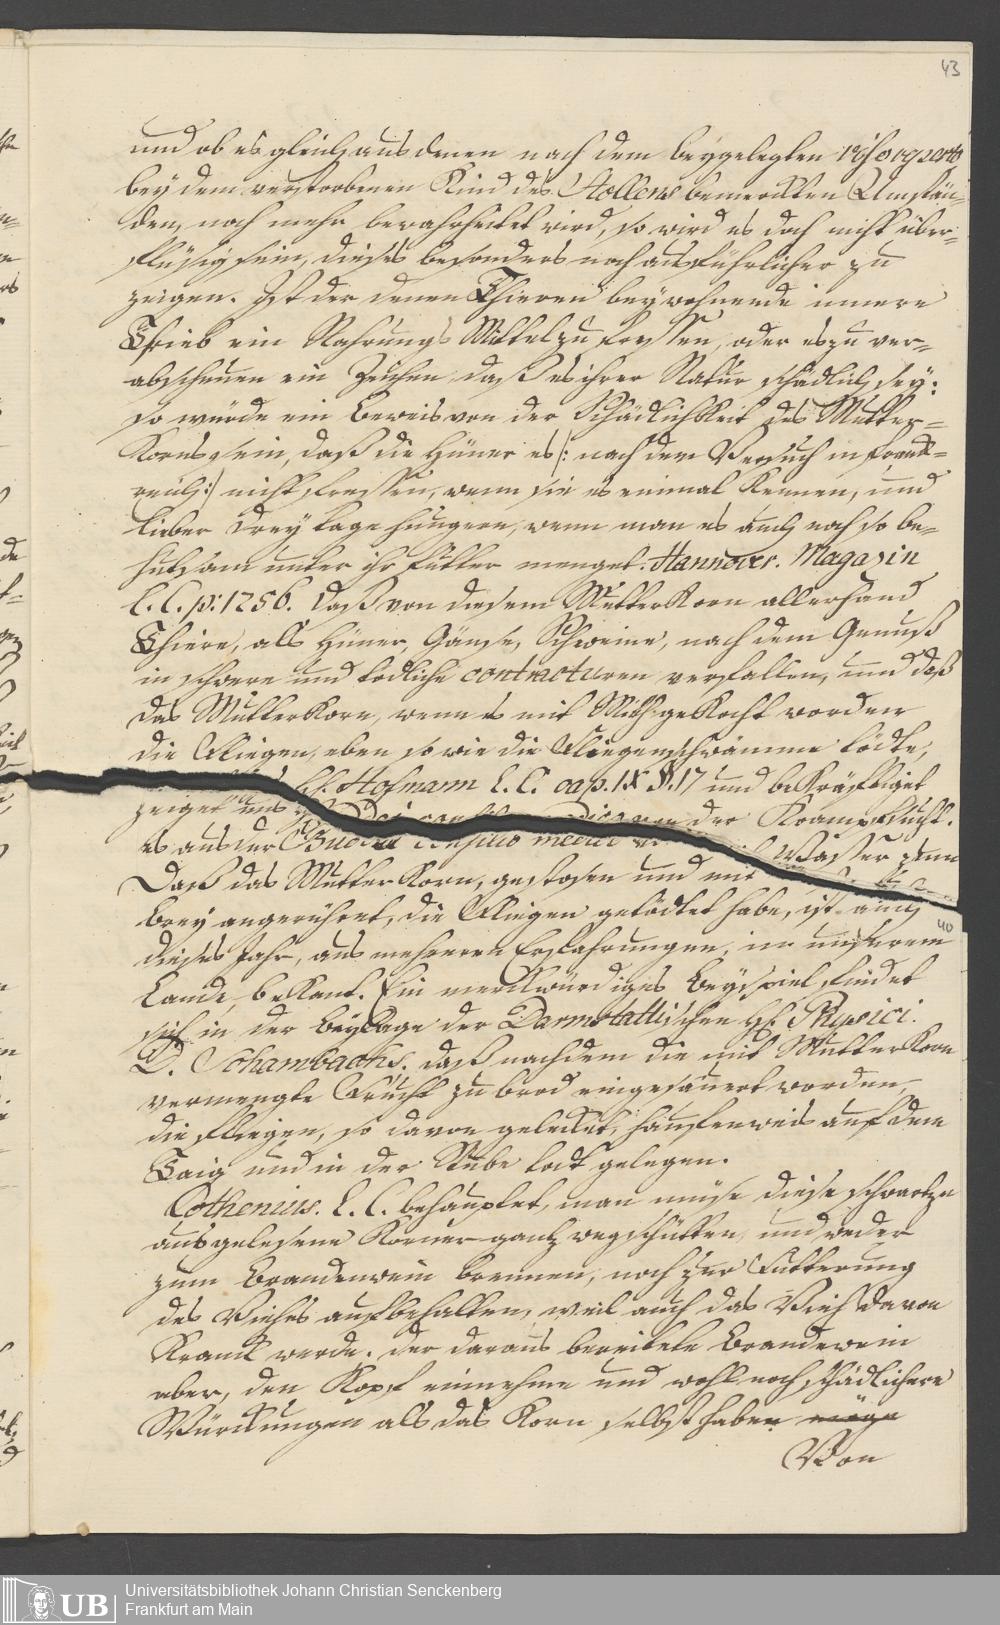 43
und ob es gleich aus denen nach dem beygelegten viso reperto
bey dem verstorbenen Kind des Stollens bemerckten Umstän-
den, noch mehr bewahrheitet wird, so wird es doch nicht über-
flüßig sein, dieses besonders noch ausführlicher zu
zeigen. Ist der denen Thieren beywohnende innere
Trieb ein Nahrungs Mittel zu fressen, oder es zu ver-
abscheuen ein Zeichen daß es ihrer Natur schädlich sey:
so würde ein Beweis von der Schädlichkeit des Mutter-
Korns sein, daß die Hüner es /: nach dem Versuch in Franck-
reich :/ nicht fressen, wenn sie es einmal kennen, und
lieber drey Tage hungern, wenn man es auch noch so be-
hutsam unter ihr Futter menget. Hannover. Magazin
l. c. p: 1256. Daß von diesem Mutter Korn allerhand
Thiere, als Hüner, Gänse, Schweine, nach dem Genuß
in schwere und tödliche contracturen verfallen, und daß
das Mutter Korn, wenn es mit Milch gekocht worden
die Fliegen, eben so wie die Fliegenschwämme tödte,
zeiget uns Hofmann l. c. cap. IX §. 17 und bekräftiget
es aus der consilio medico der Krampfsucht.
Daß das Mutter Korn, gestosen und mit Wasser zum
Brey angerühret, die Fliegen getödtet habe, ist auch
40
dieses Jahr, aus mehreren Erfahrungen, in unserem
Lande, bekant. Ein merckwürdiges Beyspiel findet
sich in der Beylage der Darmstattischen H. Physici.
D. Schambachs, daß nachdem die mit Mutter Korn
vermengte Frucht zu Brod eingesäuert worden,
die Fliegen, so davon geleckt, haufenweis auf dem
Taig und in der Stube todt gelegen.
Cothenius. l. c. behauptet, man müse diese schwartze
ausgelesene Körner gantz wegschütten, und weder
zum Brandenwein brennen, noch zur Futterung
des Viehes aufbehalten, weil auch das Vieh davon
kranck werde. Der daraus bereitete Brandewein
aber, den Kopf einnehme und wohl noch schädlichere
Würckungen als das Korn selbst haben möge
Von
Universitätsbibliothek Johann Christian Senckenberg
Frankfurt am Main
UB